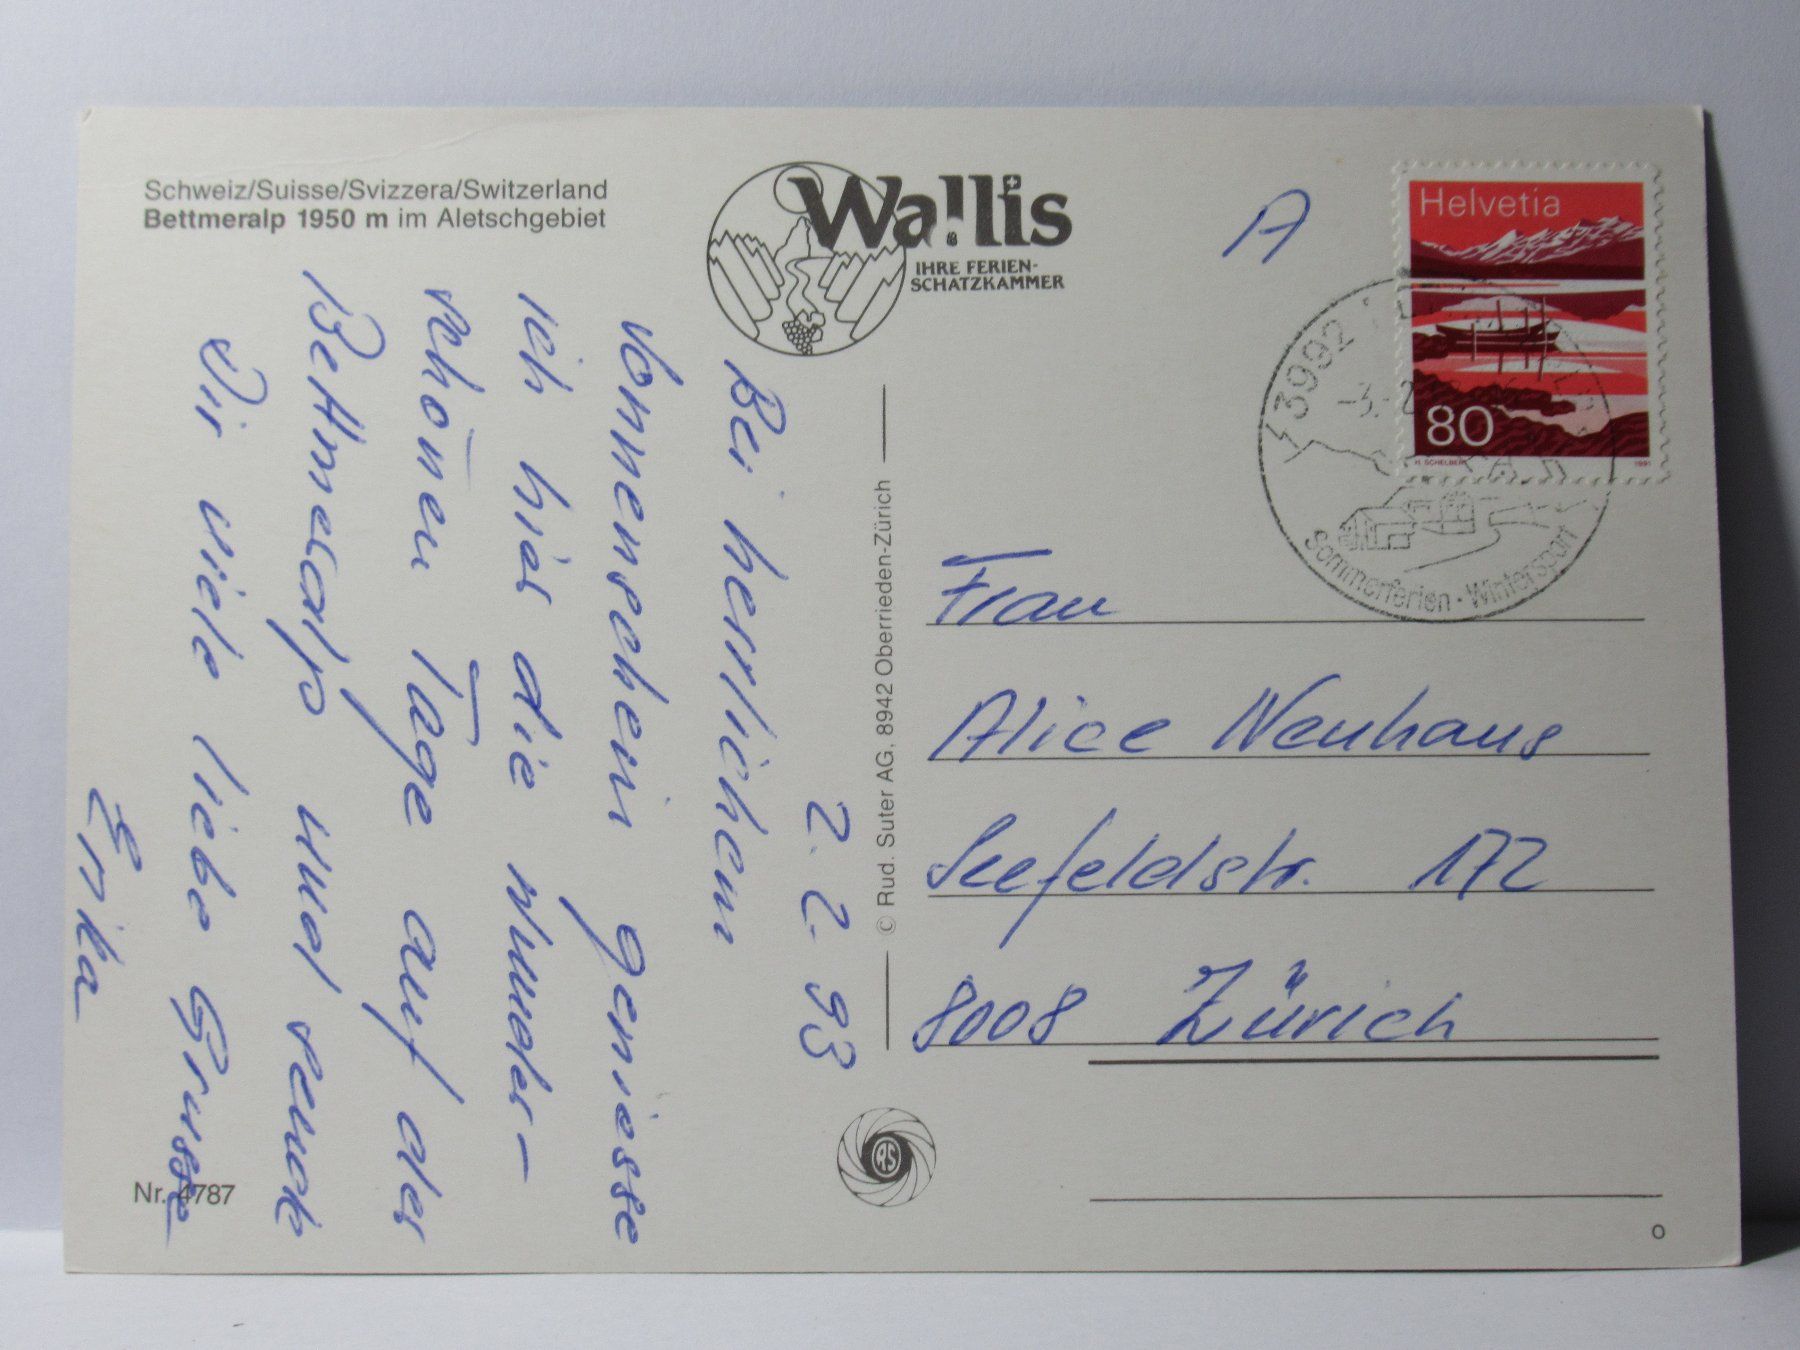 Schweiz/Suisse/Svizzera/Switzerland
Bettmeralp 1950 m im Aletschgebiet
Wallis
IHRE FERIEN-
SCHATZKAMMER
2.2.93
Bei herrlichem
Sonnenschein geniesse
ich hier die wunder-
schönen Tage auf der
Bettmeralp und sende
Dir viele liebe Grüsse
Erika
Nr. 4787
© Rud. Suter AG, 8942 Oberrieden-Zürich
RS
A
Helvetia
80
H. SCHELBERT
1991
3992
-3.-2
Sommerferien · Wintersport
Frau
Alice Neuhaus
Seefeldstr. 172
8008 Zürich
O